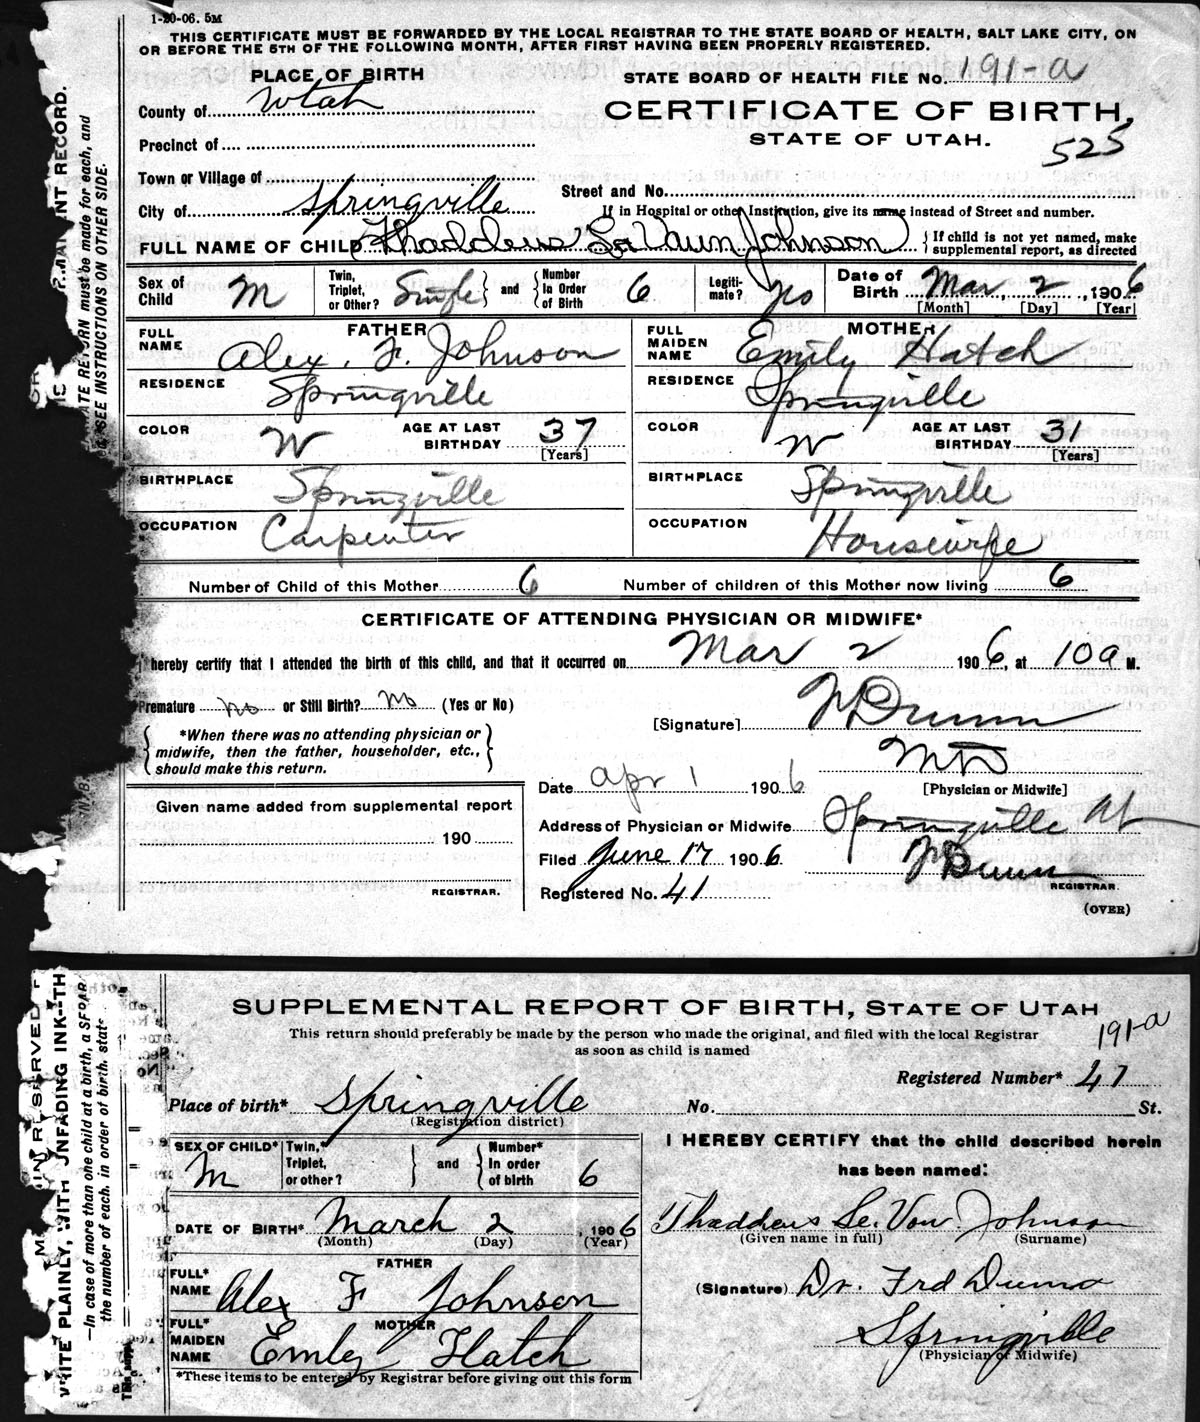 1-20-06. 5M
THIS CERTIFICATE MUST BE FORWARDED BY THE LOCAL REGISTRAR TO THE STATE BOARD OF HEALTH, SALT LAKE CITY, ON
OR BEFORE THE 5TH OF THE FOLLOWING MONTH, AFTER FIRST HAVING BEEN PROPERLY REGISTERED.
PLACE OF BIRTH
STATE BOARD OF HEALTH FILE No. 191-a
County of Utah
CERTIFICATE OF BIRTH,
STATE OF UTAH.
525
Precinct of
Town or Village of
Street and No.
City of Springville
If in Hospital or other Institution, give its name instead of Street and number.
FULL NAME OF CHILD Thaddeus LaVaun Johnson } If child is not yet named, make supplemental report, as directed
Sex of Child M
Twin, Triplet, or Other? Single } and { Number In Order of Birth 6
Legiti-mate? yes
Date of Birth Mar, 2, 1906
[Month] [Day] [Year]
FATHER
FULL NAME Alex. F. Johnson
RESIDENCE Springville
COLOR W AGE AT LAST BIRTHDAY 37
[Years]
BIRTHPLACE Springville
OCCUPATION Carpenter
MOTHER
FULL MAIDEN NAME Emily Hatch
RESIDENCE Springville
COLOR W AGE AT LAST BIRTHDAY 31
[Years]
BIRTHPLACE Springville
OCCUPATION Housewife
Number of Child of this Mother 6 Number of children of this Mother now living 6
CERTIFICATE OF ATTENDING PHYSICIAN OR MIDWIFE*
I hereby certify that I attended the birth of this child, and that it occurred on Mar 2 1906, at 10 a M.
Premature no or Still Birth? no (Yes or No)
[Signature] F Dunn
MD
[Physician or Midwife]
{ *When there was no attending physician or
midwife, then the father, householder, etc.,
should make this return. }
Date Apr 1 1906
Given name added from supplemental report
190
REGISTRAR.
Address of Physician or Midwife Springville Ut
Filed June 17 1906
F Dunn
REGISTRAR.
Registered No. 41
(OVER)
SUPPLEMENTAL REPORT OF BIRTH, STATE OF UTAH
This return should preferably be made by the person who made the original, and filed with the local Registrar
as soon as child is named
191-a
Registered Number* 41
Place of birth* Springville No. St.
(Registration district)
SEX OF CHILD* M
Twin,* Triplet, or other? } and { Number* In order of birth 6
DATE OF BIRTH* March 2, 1906
(Month) (Day) (Year)
FATHER
FULL* NAME Alex F Johnson
MOTHER
FULL* MAIDEN NAME Emley Hatch
*These items to be entered by Registrar before giving out this form
I HEREBY CERTIFY that the child described herein
has been named:
Thaddeus Le. Von Johnson
(Given name in full) (Surname)
(Signature) Dr. Frd Dunn
Springville
(Physician or Midwife)
RMANENT RECORD.
ATE RETURN must be made for each, and
SEE INSTRUCTIONS ON OTHER SIDE.
WRITE PLAINLY, WITH UNFADING INK--TH
—In case of more than one child at a birth, a SEPAR
the number of each, in order of birth, stat-